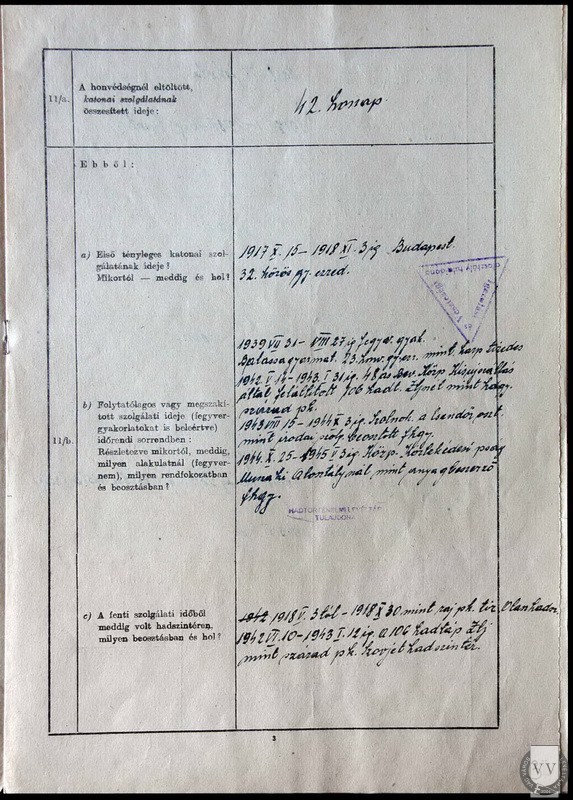 11/a.
A honvédségnél eltöltött,
katonai szolgálatának
összesített ideje:
42. honap
Ebből:
a) Első tényleges katonai szol-
gálatának ideje?
Mikortól — meddig és hol?
1917 X. 15 – 1918 XI. 3 ig Budapest.
32. közös gy. ezred.
11/b.
b) Folytatólagos vagy megszakí-
tott szolgálati ideje (fegyver-
gyakorlatokat is beleértve)
időrendi sorrendben:
Részletezve mikortól, meddig,
milyen alakulatnál (fegyver-
nem), milyen rendfokozatban
és beosztásban?
1939 VII 31 – VIII 27 ig fegyver gyak.
Balassagyarmat. 23. honv. gy. ezr. mint karp tizedes
1942. V. 14 – 1943. I. 31 ig. 48 as bev. Közp Kisujszállás
által felállított 106 hadt. Zljnél mint hdgy.
század pk.
1943 VIII 15 – 1944 X 3 ig. Szolnok. a Csendőr oszt
mint irodai szolg. beontott fhgy.
1944. X. 25 – 1945 V 3 ig. Közp. Közlekedési psag
Munkái Alosztálynál mint anyagbeszerző
fhgy.
HADTÖRTÉNELMI LEVÉLTÁR
TULAJDONA
c) A fenti szolgálati időből
meddig volt hadszíntéren,
milyen beosztásban és hol?
1942 1918 V. 3 tól – 1918 X 30 mint raj pk. tiz. Olaszhadsz.
1942 VI. 10 – 1943 I. 12 ig. a 106 hadtáp Zlj
mint század pk. Szovjet hadszintér.
3
VV